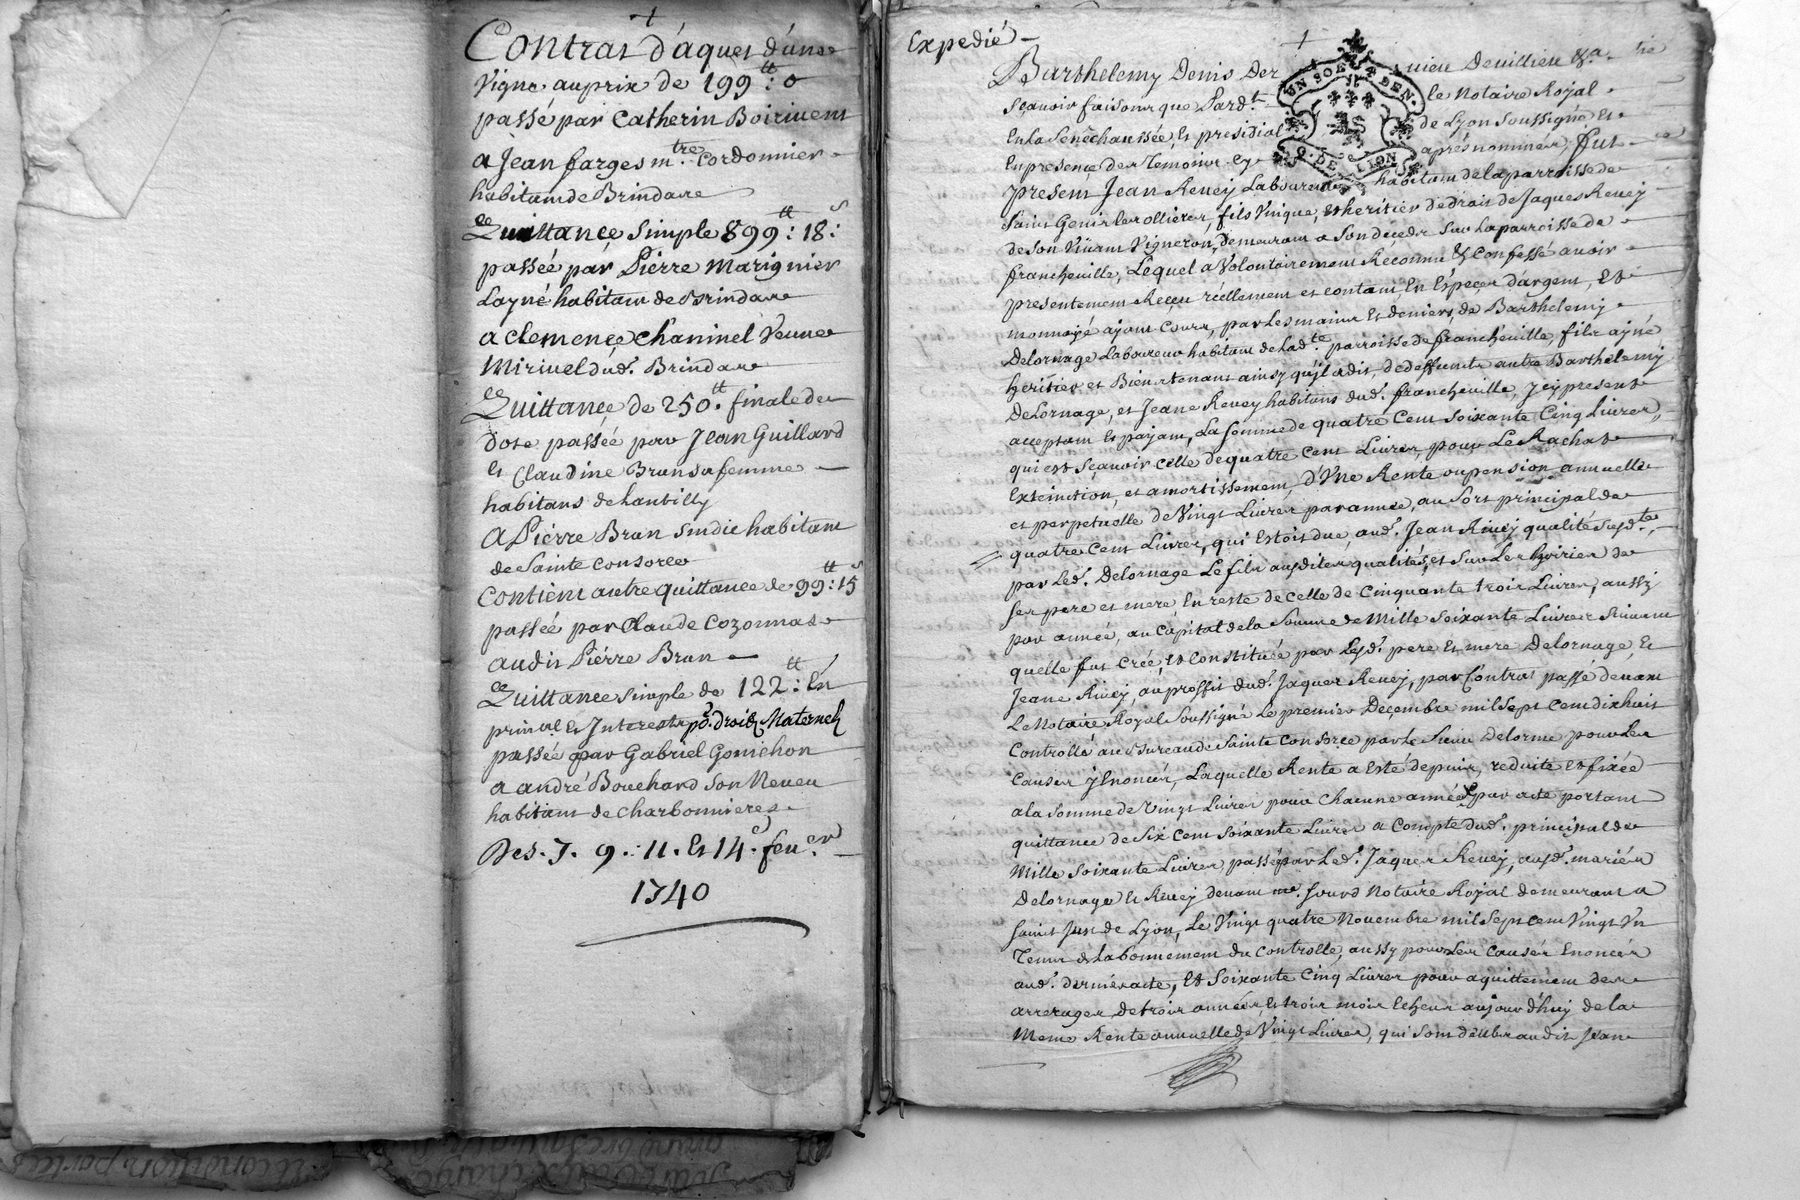 Contrat d'aquet d'une
vigne au prix de 199 tt : 0
passé par Catherin Boiriuent
a Jean farges m.tre Cordonnier
habitant de Brindare
Quittance simple 899 tt : 18 s
passée par Pierre Marignier
Layné habitant de Brindare
a clemence Chaninel veuve
Miriuel dud. Brindare
Quittance de 250 tt finale de
dote passée par Jean Guillard
et Claudine Brun sa femme
habitans de Lantilly
A Pierre Brun sindic habitant
de Sainte Consorce
Contient autre quittance de 99 tt : 15 s
passée par Claude Cozonnat
audit Pierre Brun
Quittance simple de 122 tt : En
prinal et Interests pr. droits Maternels
passée par Gabriel Gonichon
a andré Bouchard son Neveu
habitant de Charbonnieres
Des . 7 . 9 . 11 . et 14 e feu.er
1740
Expedié
Barthelemy Denis Der
UN SOL 4 DEN.
G. DE LION
Sçavoir faisons que Pard.t le Notaire Royal
En la Senéchaussée, et presidial de Lyon Soussigné et
En presence des Temoins cy aprés nommés, fut
present Jean Reuey Laboureur habitant de la parroisse de
Saint Genis les ollieres, fils Unique, et heritier de droit de Jaques Reuey
de son Viuant Vigneron, demeurant a son décedz sur la parroisse de
francheuille, Lequel a Volontairement Reconnu & Confessé auoir
presentement Reçeu réellement et contant, En Espeçes d'argent, et
monnoyé ayant cours, par les mains et deniers, de Barthelemy
Delornage Laboureur habitant de lad.te parroisse de francheuille, fils ayné
heritier et Bien tenant ainsy qu'il a dit, de deffunts autre Barthelemy
Delornage, et Jeane Reuey habitans dud. francheuille, Jcy present
acceptant et payant, La somme de quatre cent soixante Cinq Livres,
qui est Sçauoir celle de quatre cent Livres, pour Le Rachat
Extinction, et amortissement, d'Vne Rente ou pension annuelle
et perpetuelle de Vingt Livres par année, au Sort principal de
quatre Cent Livres, qui Estoit due, aud. Jean Reuey qualité Susd.te
par Led. Delornage Le fils ausdites qualités, et Sur Les hoiries de
ses pere et mere, En reste de celle de Cinquante trois Livres, aussy
par année, au Capital de la Somme de Mille Soixante Livres Suivant
quelle fut Creé, et Constituée par Lesd. pere et mere Delornage, et
Jeane Reuey, au proffit dud. Jaques Reuey, par Contrat passé deuant
Le Notaire Royal Soussigné Le premier Deçembre mil Sept Cent dix huit
Controllé au Bureau de Sainte Consorce par Le Sieur Delorme pour les
Causes y Enoncés, Laquelle Rente a Esté depuis, reduite et fixée
a la Somme de Vingt Livres pour Chacune année par acte portant
quittance de Six Cent Soixante Livres a Compte dud. principal de
Mille Soixante Livres, passé par Led. Jaques Reuey, ausd. mariés
Delornage et Reuey deuant me. Jourd Notaire Royal demeurant a
Saint Just de Lyon, Le Vingt quatre Nouembre mil Sept Cent Vingt Un
Tenu de Labonnement du Controlle, aussy pour Les Causes Enoncés
aud. dernier acte, Et Soixante Cinq Livres pour aquittement des
arrerages, de trois années, et trois mois Echeus aujourd'huy de la
Meme Rente annuelle de Vingt Livres, qui sont deübs audit Jean